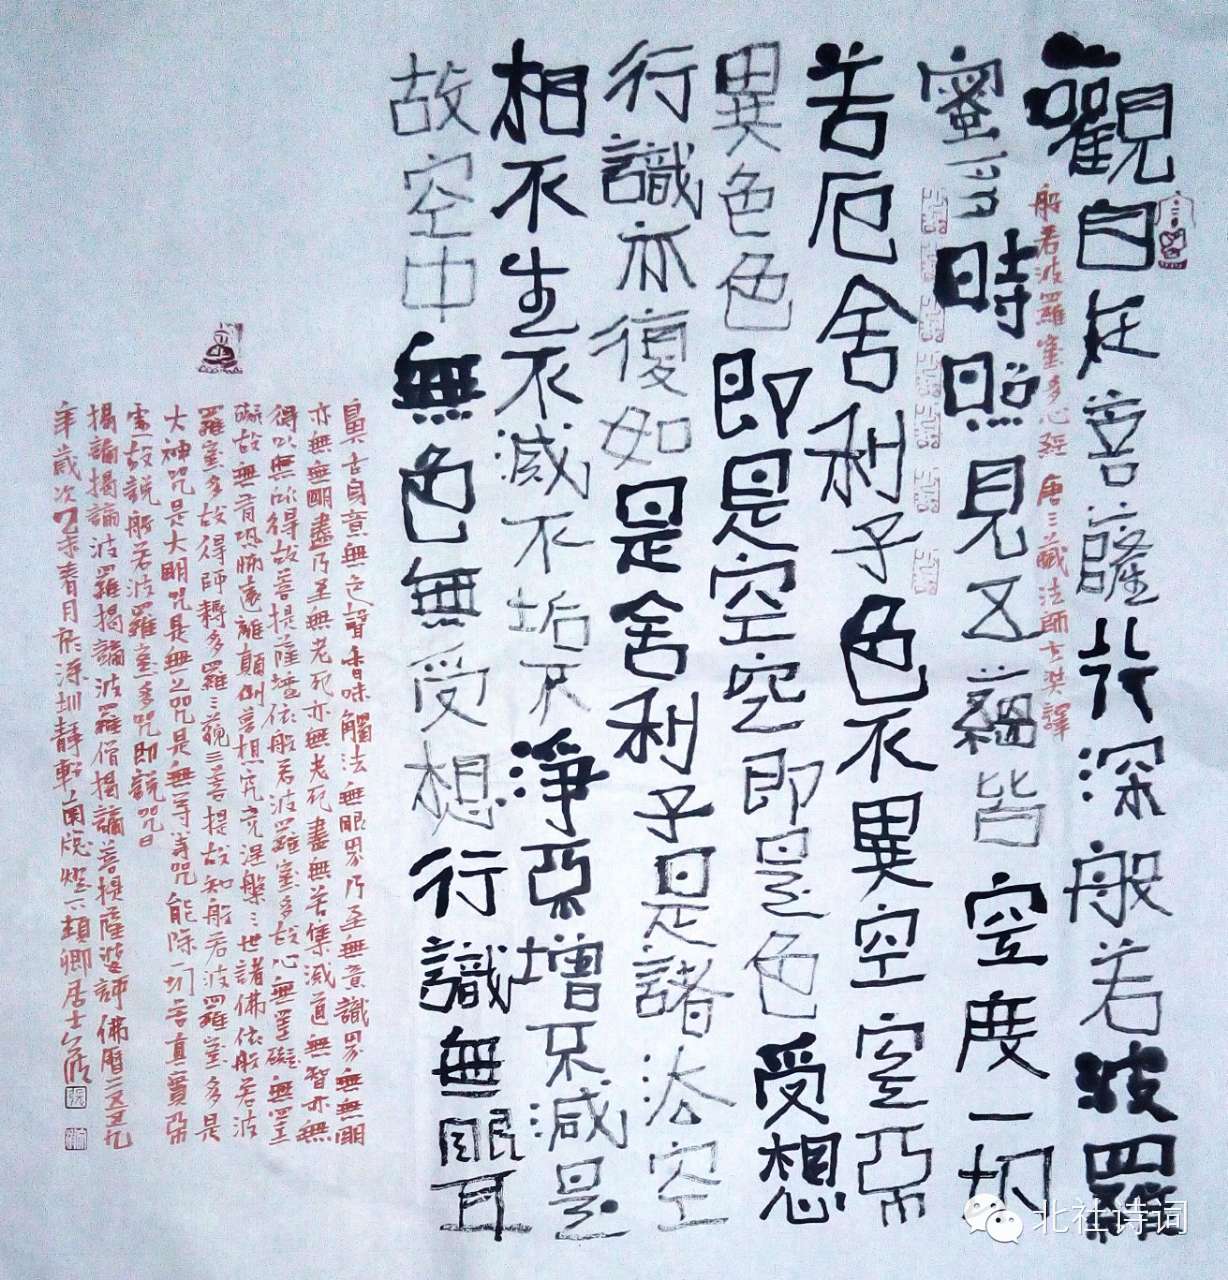 觀自在菩薩行深般若波羅
般若波羅蜜多心經 唐三藏法師玄奘譯
蜜多時照見五蘊皆空度一切
苦厄舍利子色不異空空不
異色色即是空空即是色受想
行識亦復如是舍利子是諸法空
相不生不滅不垢不淨不增不減是
故空中無色無受想行識無眼耳
鼻舌身意無色聲香味觸法無眼界乃至無意識界無無明
亦無無明盡乃至無老死亦無老死盡無苦集滅道無智亦無
得以無所得故菩提薩埵依般若波羅蜜多故心無罣礙無罣
礙故無有恐怖遠離顛倒夢想究竟涅槃三世諸佛依般若波
羅蜜多故得阿耨多羅三藐三菩提故知般若波羅蜜多是
大神咒是大明咒是無上咒是無等等咒能除一切苦真實不
虛故說般若波羅蜜多咒即說咒曰
揭諦揭諦波羅揭諦波羅僧揭諦菩提薩婆訶佛曆二五五九
年歲次乙未春月於深圳靜軒南窗燈下穎卿居士
北社诗词